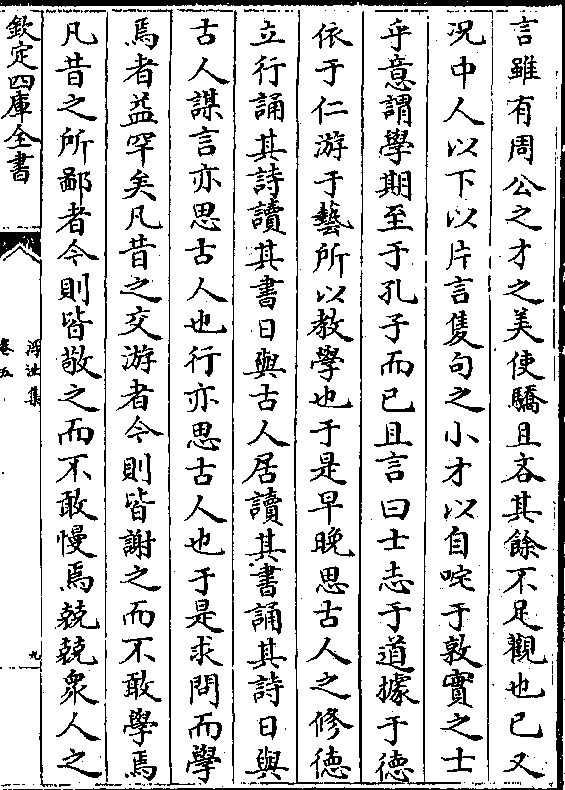 言雖有周公之才之美使驕且吝其餘不足觀也已又
况中人以下以片言隻句之小才以自啶于敦實之士
乎意謂學期至于孔子而已且言曰士志于道據于徳
依于仁游于藝所以教學也于是早晚思古人之修徳
立行誦其詩讀其書日與古人居讀其書誦其詩日與
古人謀言亦思古人也行亦思古人也于是求問而學
焉者益罕矣凡昔之交游者今則皆謝之而不敢學焉
凡昔之所鄙者今則皆敬之而不敢慢焉兢兢衆人之
欽定四庫全書
浮沚集
卷五
九